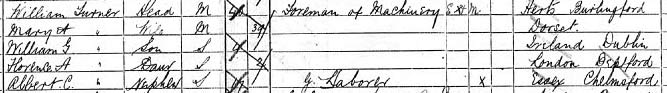 William Turner Head M Foreman of Machinery E & M Herts Burlingford
Mary A " Wife M Dorset
William G " Son S Ireland Dublin
Florence A " Daur S London Deptford
Albert C. " Nephew S G. Laborer x Essex Chelmsford